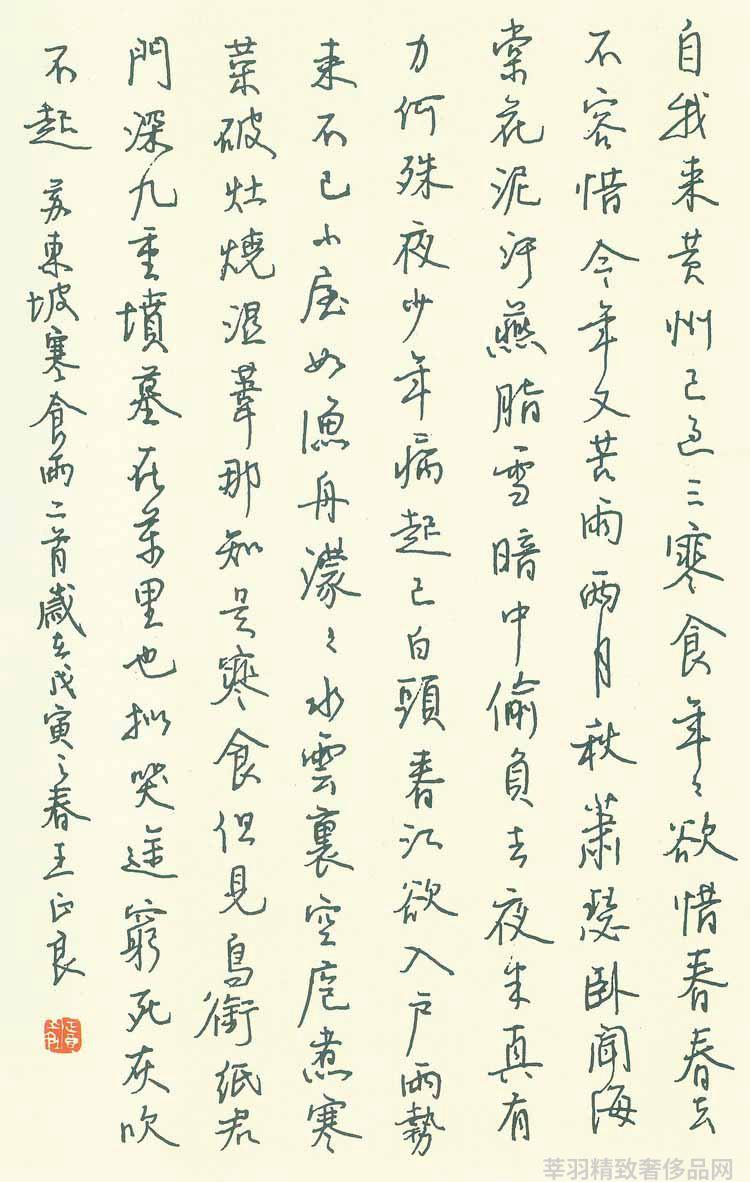 自我来黄州已过三寒食年々欲惜春春去
不容惜今年又苦雨兩月秋蕭瑟卧聞海
棠花泥汙燕脂雪暗中偷負去夜半真有
力何殊夜少年病起已白頭春江欲入户雨勢
来不已小屋如漁舟濛々水雲裏空庖煮寒
菜破灶燒濕葦那知是寒食但見烏銜紙君
門深九重墳墓在萬里也拟哭途窮死灰吹
不起 蘇東坡寒食雨二首歲在戊寅之春王正良
莘羽精致奢侈品网